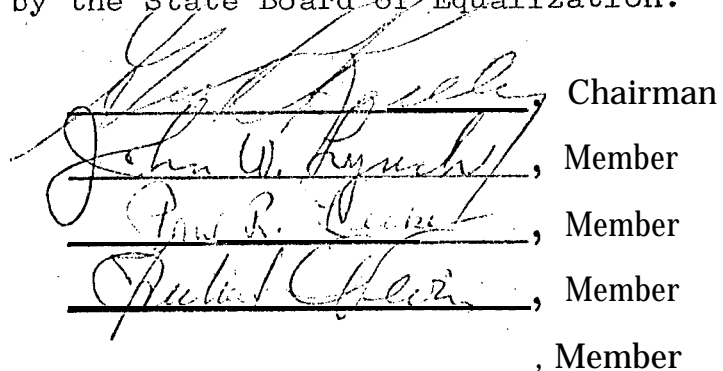 by the State Board of Equalization.
, Chairman
John W. Lynch, Member
Paul R. , Member
, Member
, Member